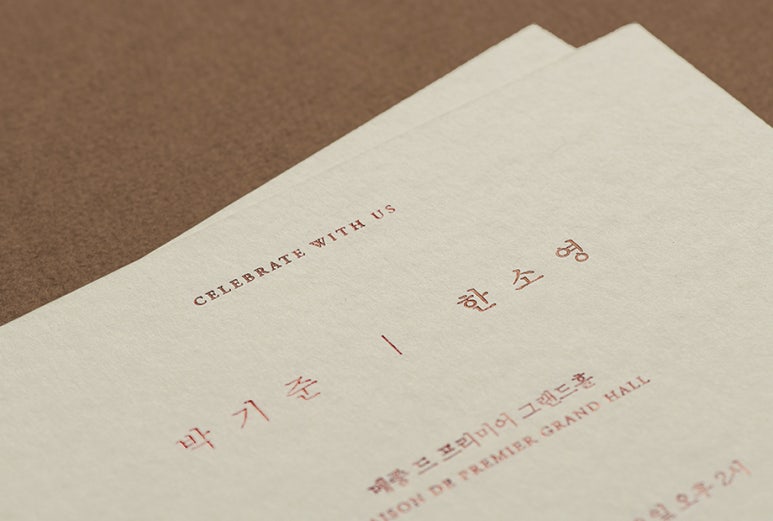 CELEBRATE WITH US
박기준 | 한소영
메종 드 프리미어 그랜드홀
DE PREMIER GRAND HALL
오후 2시